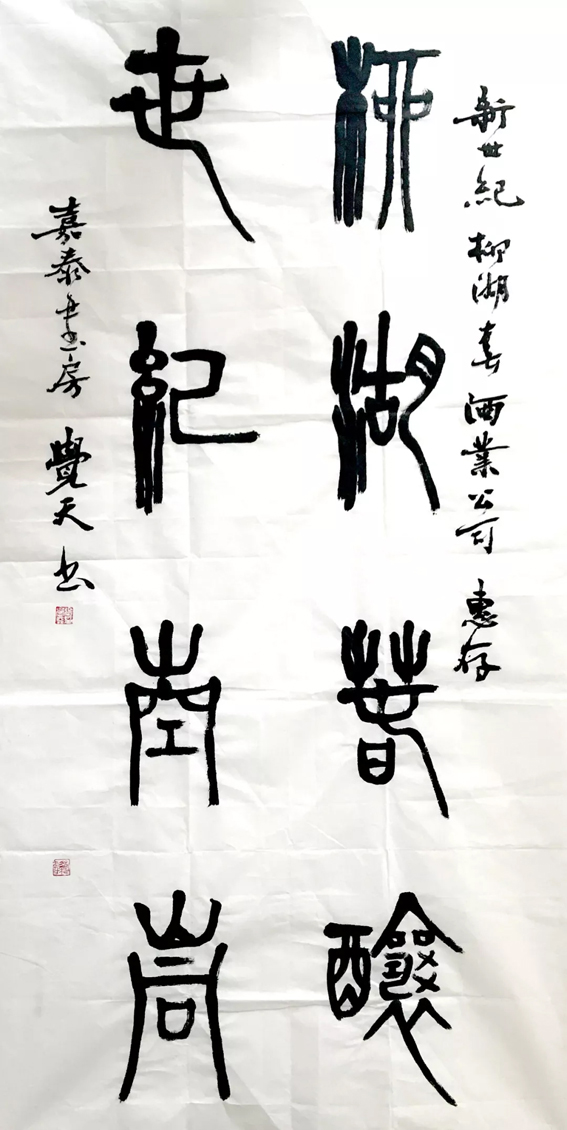 新世紀柳湖春酒業公司惠存
柳湖春釀
世紀崆峒
嘉泰書房覺天书